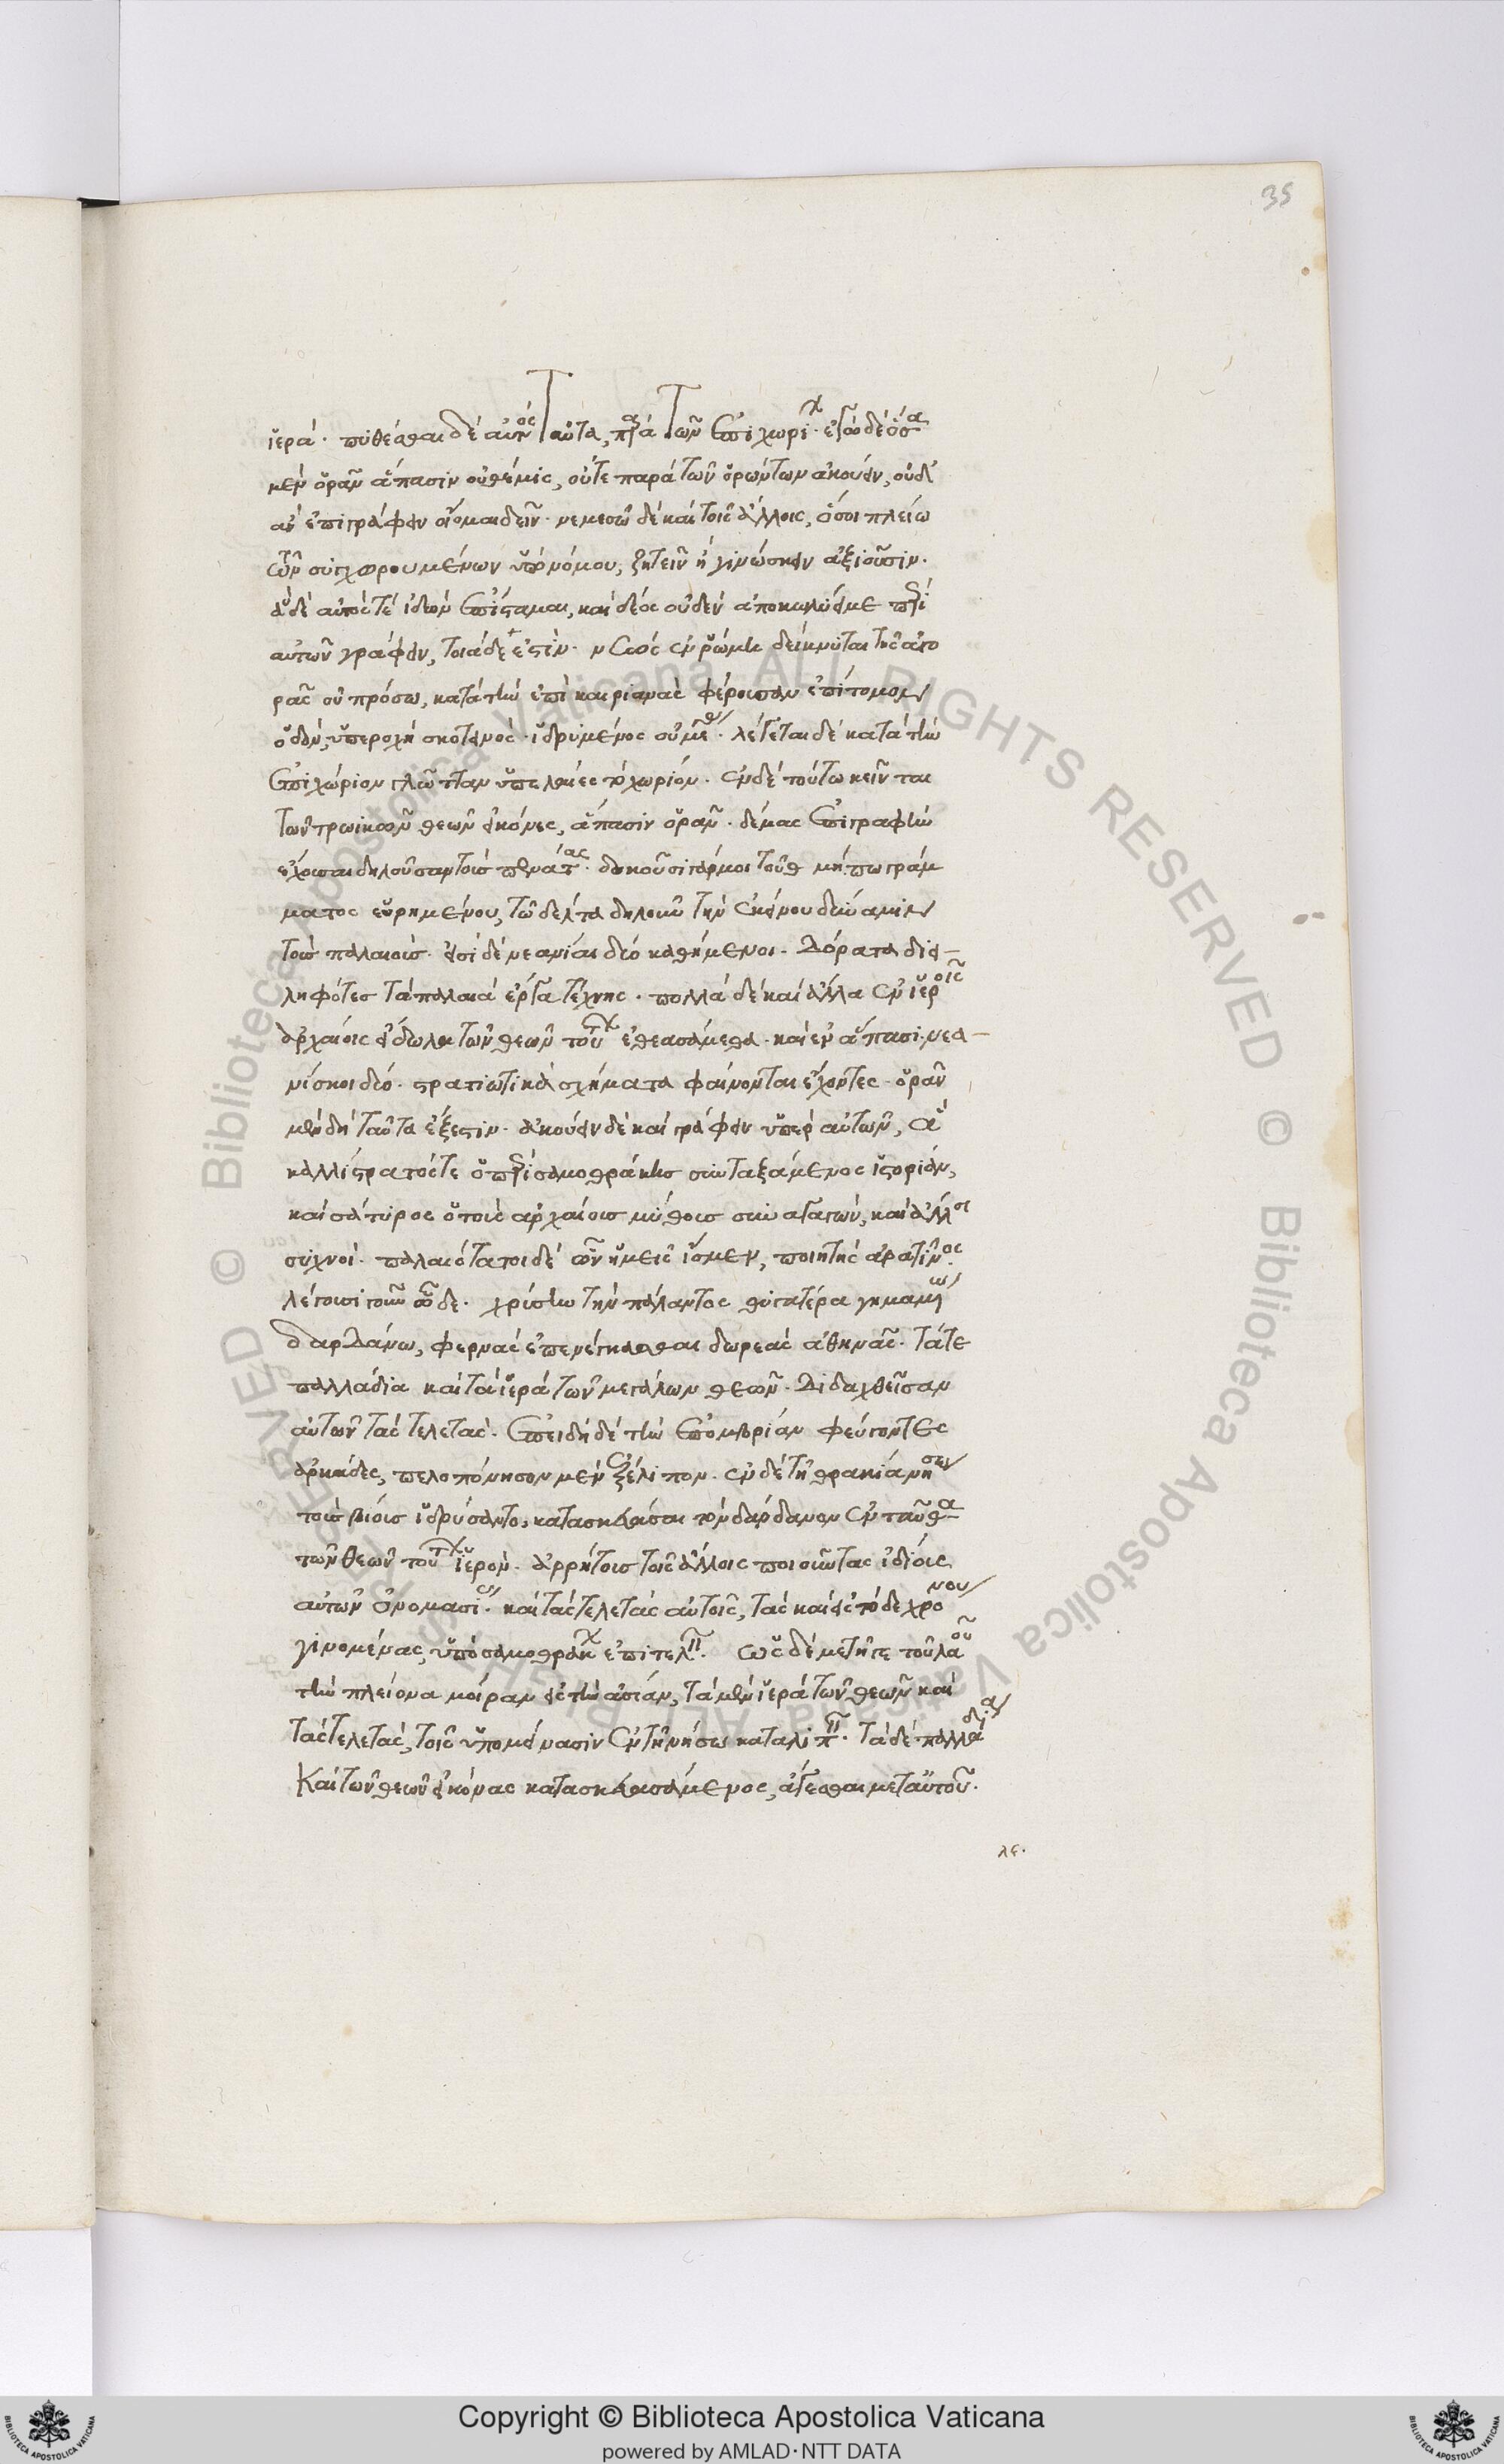 35
ἱερά. πυθέσθαι δὲ αὐτὸς ταῦτα, παρὰ τῶν ἐπιχωρί. ἐγὼ δὲ ὅσα
μὲν ὁρᾶν ἅπασιν οὐ θέμις, οὔτε παρὰ τῶν ὁρώντων ἀκούειν, οὐδ'
ἀν ἐπιγράφειν οἴομαι δεῖν. νεμεσῶ δὲ καὶ τοῖς ἄλλοις, ὅσοι πλείω
τῶν συγχωρουμένων ὑπὸ νόμου, ζητεῖν ἢ γινώσκειν ἀξιοῦσιν.
ἃ δὲ αὐτός τε ἰδὼν ἐπίσταμαι, καὶ δέος οὐδὲν ἀποκωλύει με περὶ
αὐτῶν γράφειν, τοιάδε ἐστίν. νεὼς ἐν ῥώμῃ δείκνυται τῆς ἀγο
ρᾶς οὐ πρόσω, κατὰ τὴν ἐπὶ καρίανας φέρουσαν ἐπίτομον
ὁδὸν, ὑπεροχῇ σκοτεινὸς. ἱδρυμένος οὐ μέγ. λέγεται δὲ κατὰ τὴν
ἐπιχώριον γλῶτταν ὑπ' ἐλαίες τὸ χωρίον. ἐν δὲ τούτω κεῖνται
τῶν τρωικῶν θεῶν εἰκόνες, ἅπασιν ὁρᾶν. δέμας ἐπιγραφὴν
ἔχουσαι δηλοῦσαν τοὺς πενάτας. δοκοῦσι γάρ μοι τοῦ θ μήπω γράμ
ματος εὑρημένου, τῶ δέλτα δηλοῦν τὴν ἐκείνου δύναμιν
τοὺς παλαιούς. εἰσὶ δὲ νεανίαι δύο καθήμενοι. δόρατα διει-
ληφότες τὰ παλαιὰ ἔργα τέχνης. πολλὰ δὲ καὶ ἄλλα ἐν ἱεροῖς
ἀρχαίοις εἴδωλα τῶν θεῶν τούτ ἐθεασάμεθα. καὶ ἐν ἅπασι. νεα-
νίσκοι δύο. στρατιωτικὰ σχήματα φαίνονται ἔχοντες. ὁρᾶν
μὲν δὴ ταῦτα ἔξεστιν. ἀκούειν δὲ καὶ γράφειν ὑπὲρ αὐτῶν, ἃ
καλλίστρατός τε ὁ περὶ σαμοθράκης συνταξάμενος ἱστορίαν,
καὶ σάτυρος ὁ τοὺς ἀρχαίους μύθους συναγαγών, καὶ ἄλλοι
συχνοί. παλαιότατοι δὲ ὧν ἡμεῖς ἴσμεν, ποιητὴς ἀρατῖνος.
λέγουσι γοῦν ὧδε. χρύσην τὴν πάλαντος θυγατέρα γημαμένω
δαρδάνω, φερνὰς ἐπενέγκασθαι δωρεὰς ἀθηνᾶς. τά τε
παλλάδια καὶ τὰ ἱερὰ τῶν μεγάλων θεῶν. διδαχθεῖσαν
αὐτῶν τὰς τελετάς. ἐπειδὴ δὲ τὴν ἐπομβρίαν φεύγοντες
ἀρκάδες, πελοπόννησον μὲν ἐξέλιπον. ἐν δὲ τῇ θρακίᾳ νήσω
τοὺς βίους ἱδρύσαντο, κατασκευάσαι τὸν δάρδανον ἐνταῦθα
τῶν θεῶν τούτ ἱερὸν. ἀρρήτους τοῖς ἄλλοις ποιοῦντας ἰδίους
αὐτῶν ὀνομασί. καὶ τὰς τελετὰς αὐτοῖς, τὰς καὶ εἰς τόδε χρόνου
γινομένας, ὑπὸ σαμοθρακ ἐπιτελ. ὡς δὲ μετῆγε τοῦ λαοῦ
τὴν πλείονα μοῖραν εἰς τὴν ἀσίαν, τὰ μὲν ἱερὰ τῶν θεῶν καὶ
τὰς τελετὰς, τοῖς ὑπομείνασιν ἐν τῇ νήσω καταλιπ. τὰ δὲ παλλάδια
καὶ τῶν θεῶν εἰκόνας κατασκευασάμενος, ἄγεσθαι μετ' αὐτοῦ.
λε.
© Biblioteca Apostolica Vaticana ALL RIGHTS RESERVED
Copyright © Biblioteca Apostolica Vaticana
powered by AMLAD·NTT DATA